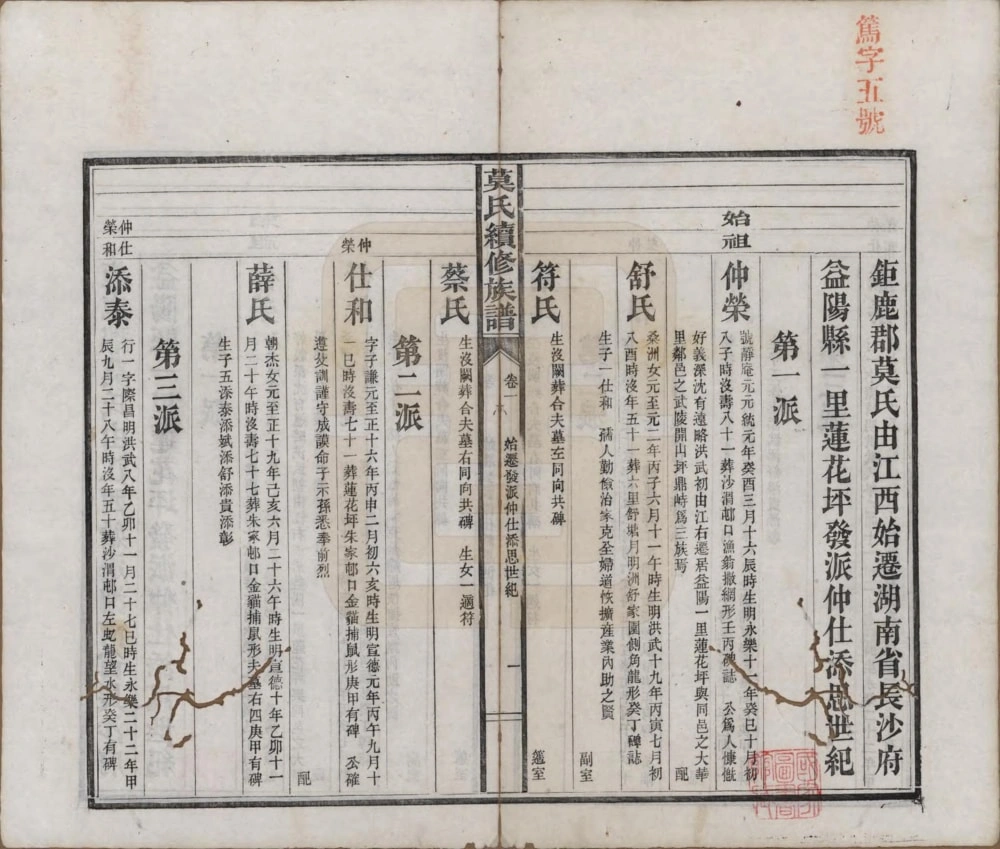 篤字五號
鉅鹿郡莫氏由江西始遷湖南省長沙府
益陽縣一里蓮花坪發派仲仕添思世紀
第一派
始祖
仲榮
號靜庵元元統元年癸酉三月十六辰時生明永樂十一年癸巳十月初
八子時沒壽八十一葬沙渭邨口漁翁撒網形壬丙碑誌 公爲人慷慨
好義深沈有遠略洪武初由江右遷居益陽一里蓮花坪與同邑之大華
里鄰邑之武陵開山坪鼎峙爲三族焉
配
舒氏
桑洲女元至元二年丙子六月十一午時生明洪武十九年丙寅七月初
八酉時沒年五十一葬六里舒塘月明洲舒家園側角龍形癸丁碑誌
生子一仕和 孺人勤儉治家克全婦道恢擴產業內助之賢
副室
符氏
生沒闕葬合夫墓左同向共碑
簉室
蔡氏
生沒闕葬合夫墓右同向共碑 生女一適符
第二派
仲榮
仕和
字子謙元至正十六年丙申二月初六亥時生明宣德元年丙午九月十
一巳時沒壽七十一葬蓮花坪朱家邨口金貓捕鼠形庚甲有碑 公確
遵父訓謹守成謨命子示孫悉奉前烈
配
薛氏
朝杰女元至正十九年己亥六月二十六午時生明宣德十年乙卯十一
月二十午時沒壽七十七葬朱家邨口金貓捕鼠形夫墓右四庚甲有碑
生子五添泰添斌添舒添貴添彰
第三派
仲榮仕和
添泰
行一字際昌明洪武八年乙卯十一月二十七巳時生永樂二十二年甲
辰九月二十八午時沒年五十葬沙渭邨口左虬龍望水形癸丁有碑
莫氏續修族譜
卷一
始遷發派仲仕添思世紀
一